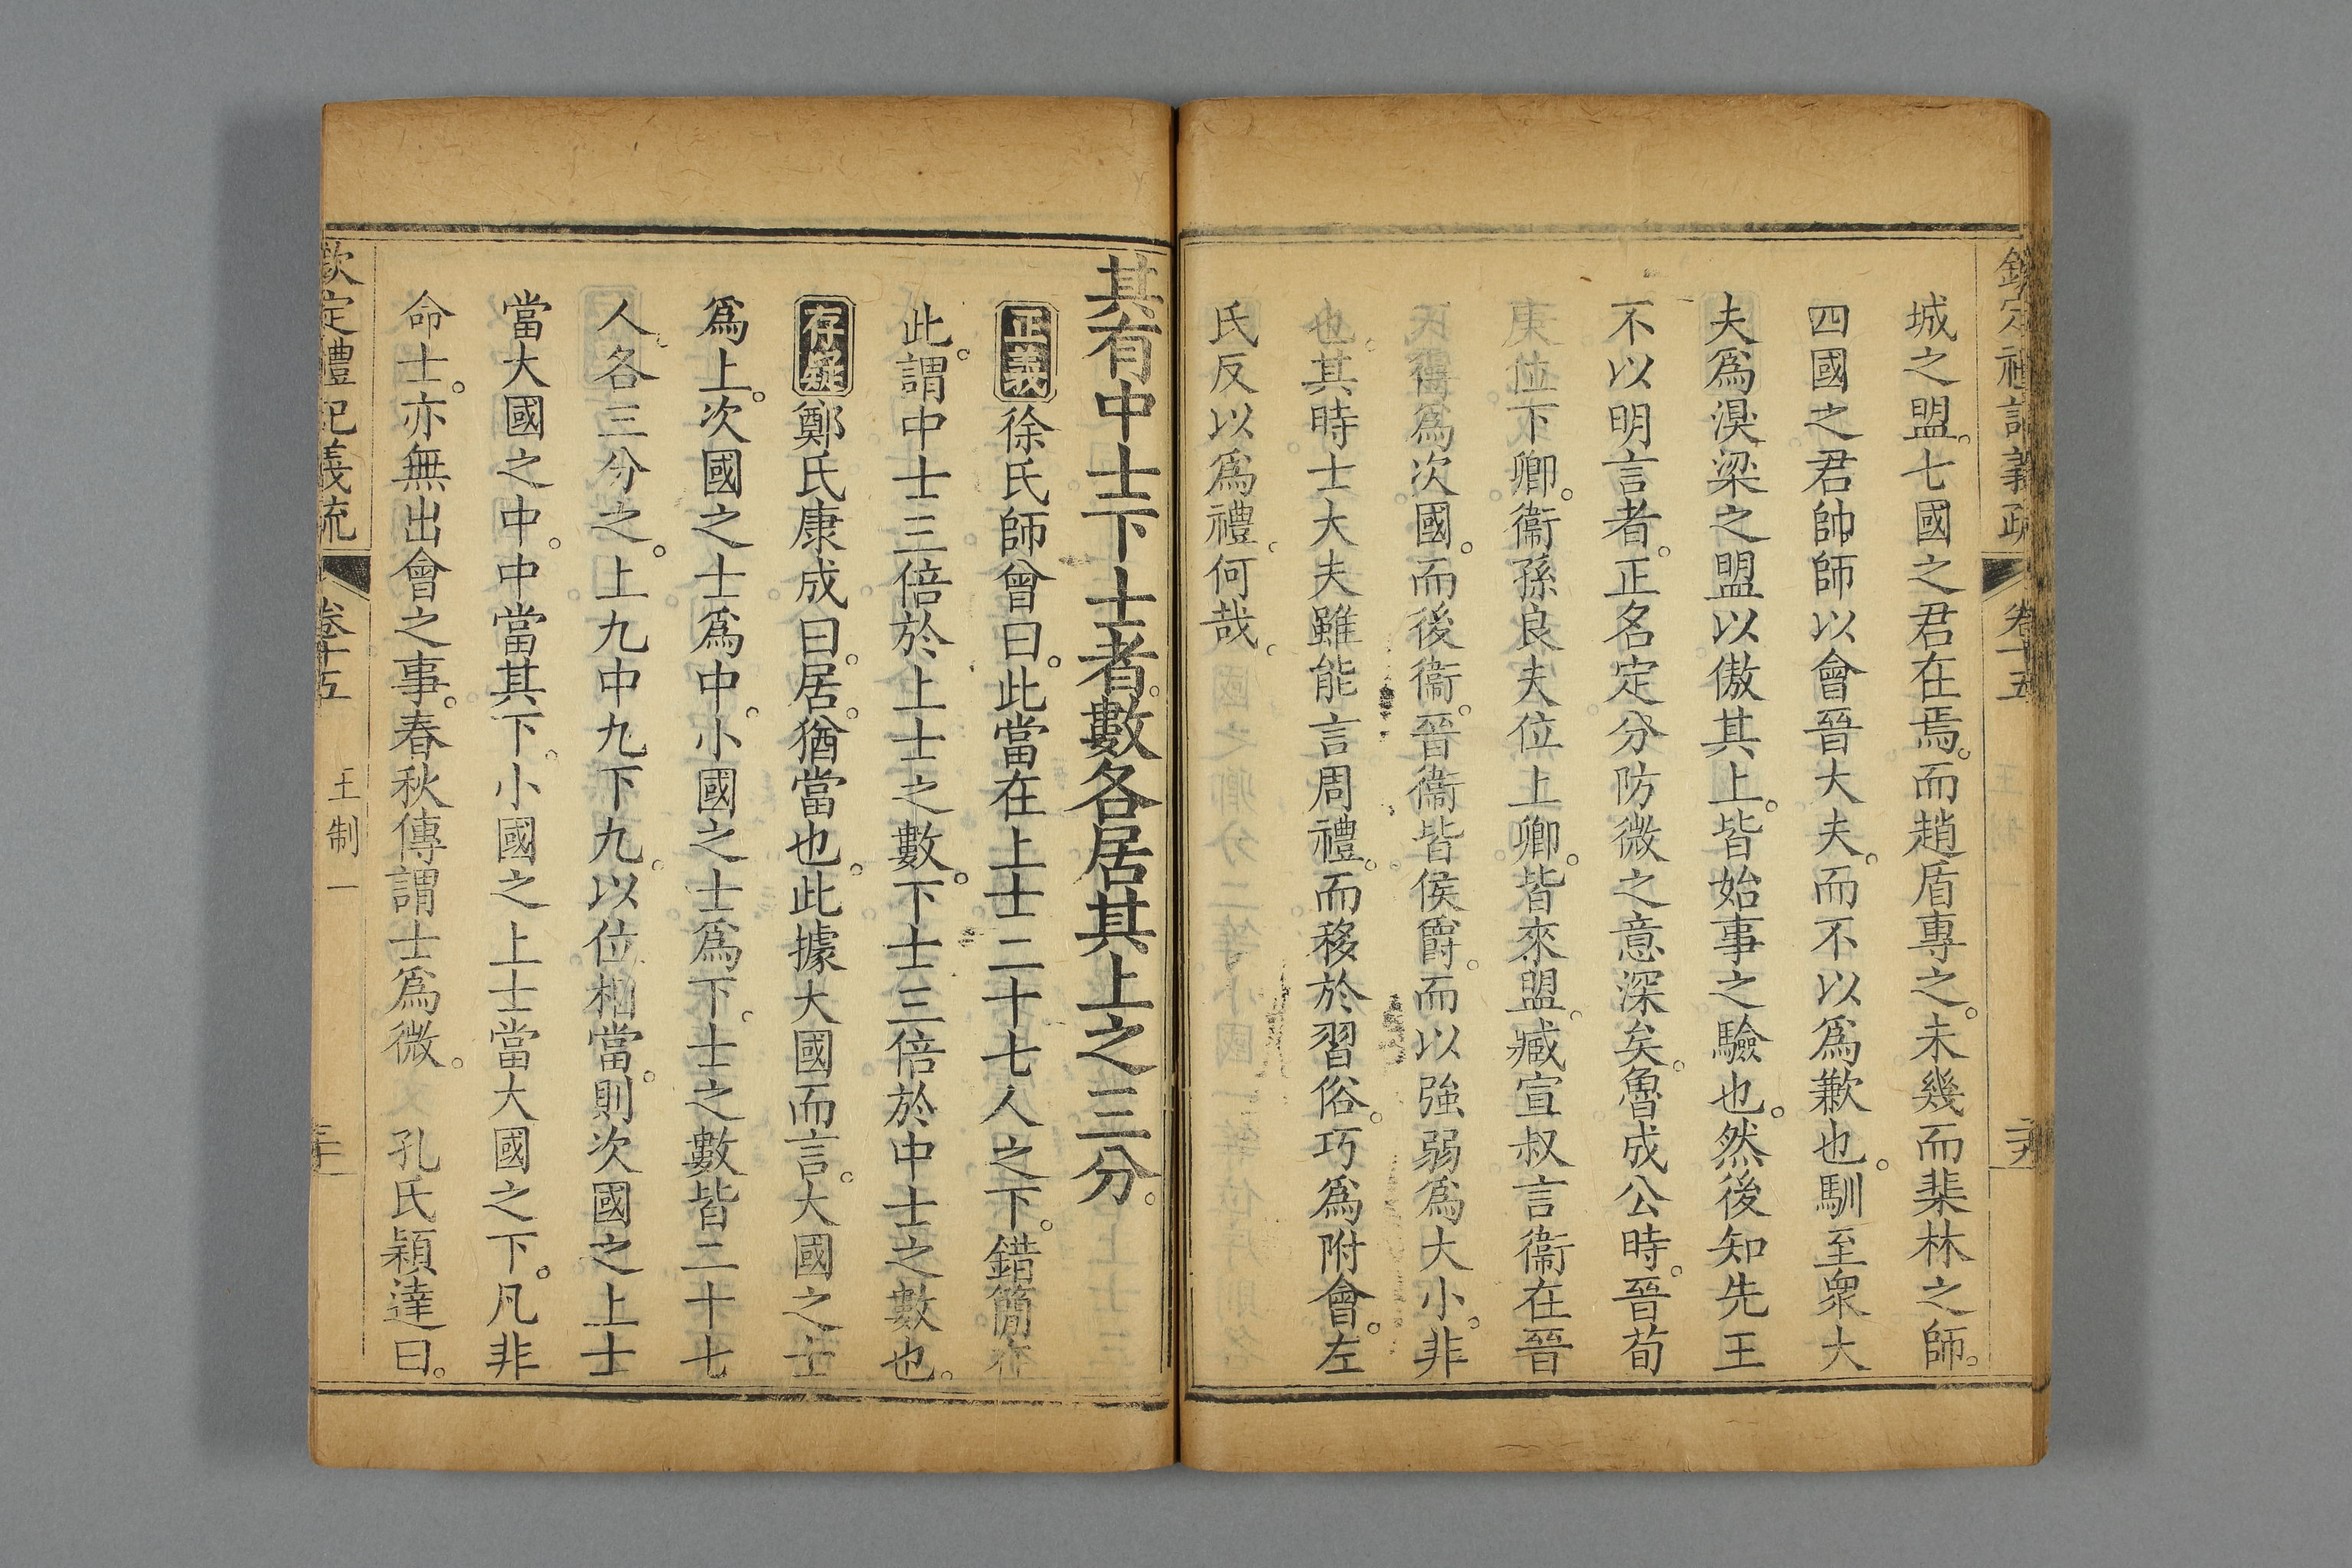 欽定禮記義疏 卷十五
城之盟。七國之君在焉。而趙盾專之。未幾而棐林之師。
四國之君帥師以會晉大夫。而不以爲歉也。馴至衆大
夫爲湨梁之盟以傲其上。皆始事之驗也。然後知先王
不以明言者。正名定分防微之意深矣。魯成公時。晉荀
庚位下卿。衞孫良夫位上卿。皆來盟。臧宣叔言衞在晉
不得爲次國。而後衞。晉衞皆侯爵。而以強弱爲大小。非
也。其時士大夫雖能言周禮。而移於習俗。巧爲附會。左
氏反以爲禮。何哉。
其有中士下士者。數各居其上之三分。
正義 徐氏師曾曰。此當在上士二十七人之下。錯簡在
此。謂中士三倍於上士之數。下士三倍於中士之數也。
存疑 鄭氏康成曰。居。猶當也。此據大國而言。大國之士
爲上。次國之士爲中。小國之士爲下。士之數皆二十七
人。各三分之。上九中九下九。以位相當。則次國之上士
當大國之中。中當其下。小國之上士當大國之下。凡非
命士。亦無出會之事。春秋傳謂士爲微。 孔氏穎達曰。
欽定禮記義疏 卷十五 王制一